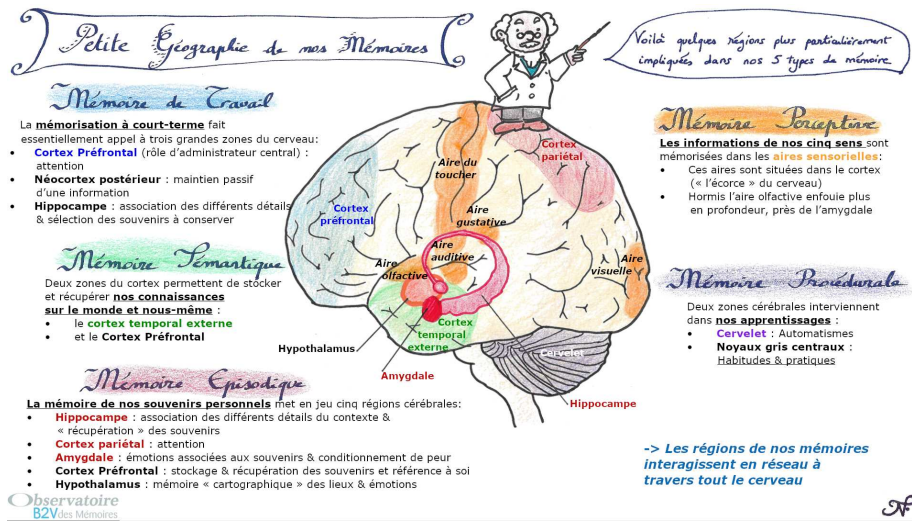 Petite Géographie de nos Mémoires
Voilà quelques régions plus particulièrement
impliquées dans nos 5 types de mémoire
Mémoire de Travail
La mémorisation à court-terme fait
essentiellement appel à trois grandes zones du cerveau:
• Cortex Préfrontal (rôle d'administrateur central) :
attention
• Néocortex postérieur : maintien passif
d'une information
• Hippocampe : association des différents détails
& sélection des souvenirs à conserver
Mémoire Sémantique
Deux zones du cortex permettent de stocker
et récupérer nos connaissances
sur le monde et nous-même :
• le cortex temporal externe
• et le Cortex Préfrontal
Mémoire Episodique
La mémoire de nos souvenirs personnels met en jeu cinq régions cérébrales:
• Hippocampe : association des différents détails du contexte &
« récupération » des souvenirs
• Cortex pariétal : attention
• Amygdale : émotions associées aux souvenirs & conditionnement de peur
• Cortex Préfrontal : stockage & récupération des souvenirs et référence à soi
• Hypothalamus : mémoire « cartographique » des lieux & émotions
Observatoire
B2V des Mémoires
Cortex
pariétal
Aire du
toucher
Cortex
préfrontal
Aire
gustative
Aire
auditive
Aire
olfactive
Aire
visuelle
Cortex
temporal
externe
Cervelet
Hypothalamus
Amygdale
Hippocampe
Mémoire Perceptive
Les informations de nos cinq sens sont
mémorisées dans les aires sensorielles:
• Ces aires sont situées dans le cortex
(« l'écorce » du cerveau)
• Hormis l'aire olfactive enfouie plus
en profondeur, près de l'amygdale
Mémoire Procédurale
Deux zones cérébrales interviennent
dans nos apprentissages :
• Cervelet : Automatismes
• Noyaux gris centraux :
Habitudes & pratiques
-> Les régions de nos mémoires
interagissent en réseau à
travers tout le cerveau